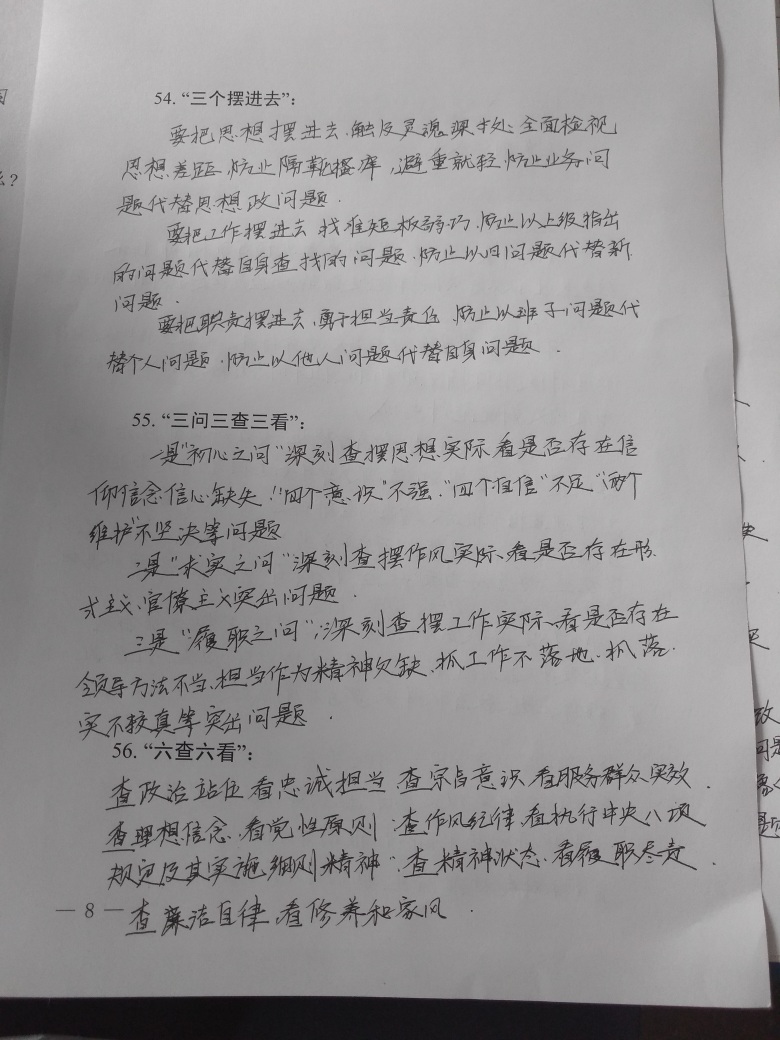 54. “三个摆进去”：
要把思想摆进去、触及灵魂深处、全面检视
思想差距，防止隔靴搔痒，避重就轻，防止业务问
题代替思想政问题．
要把工作摆进去 找准短板弱巧，防止以上级指出
的问题代替自身查找的问题．防止以旧问题代替新
问题．
要把职责摆进去，勇于担当责任，防止以班子问题代
替个人问题．防止以他人问题代替自身问题．
55. “三问三查三看”：
一是“初心之问”深刻查摆思想实际 看是否存在信
仰信念信心缺失，“四个意识”不强．“四个自信”不足“两个
维护”不坚决等问题
二是“求实之问”深刻查摆作风实际、看是否存在形
式主义、官僚主义突出问题．
三是“履职之问”：深刻查摆工作实际、看是否存在
领导方法不当、担当作为精神欠缺、抓工作不落地、抓落
实不较真等突出问题．
56. “六查六看”：
查政治站位 看忠诚担当 查宗旨意识 看服务群众实效．
查理想信念、看党性原则．查作风纪律、看执行中央八项
规定及其实施细则精神．查精神状态、看履职尽责．
查廉洁自律、看修养和家风．
— 8 —
么?